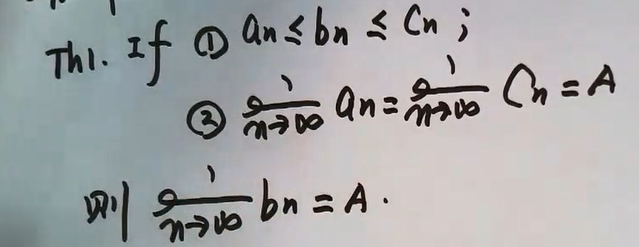 Th1. If ① an ≤ bn ≤ Cn ;
② lim n→∞ an = lim n→∞ Cn = A
则 lim n→∞ bn = A .